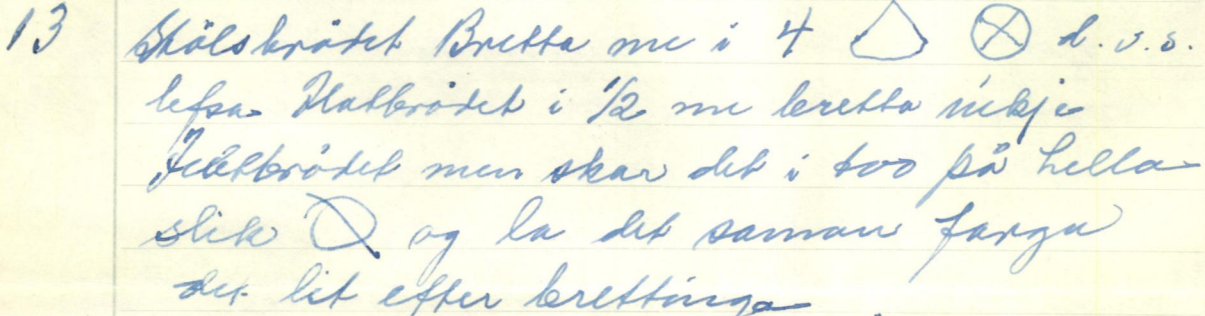 13 Stölsbrödet Bretta me i 4 d.v.s.
lefsa. Flatbrödet i 1/2 me bretta inkje
Flatbrödet men skar det i too på hella
slik og la det saman farga
det lit efter brettinga